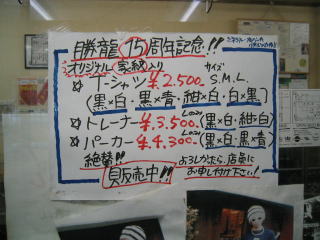 勝龍 15周年記念!!
オリジナル 家紋入り
☆ T-シャツ ¥2,500 サイズ S.M.L.
(黒×白・黒×青・紺×白・白×黒)
☆ トレーナー ¥3,500 (黒×白・紺×白)
☆ パーカー ¥4,300 (黒×白・黒×青)
絶賛!!
販売中!!
よろしかったら、店員に
お申し付け下さい!